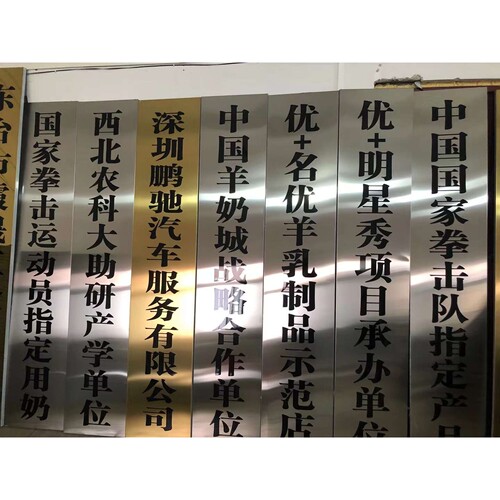 国家拳击运动员指定用奶
西北农科大助研产学单位
深圳鹏驰汽车服务有限公司
中国羊奶城战略合作单位
优+名优羊乳制品示范店
优+明星秀项目承办单位
中国国家拳击队指定产品